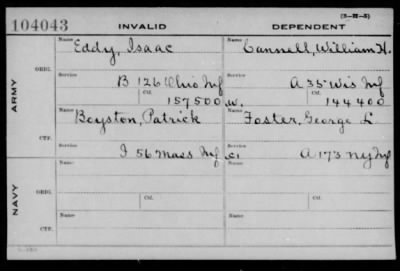 (3-M-5)
104043 INVALID DEPENDENT
Name Eddy, Isaac Name Cannell, William H.
ARMY
ORIG.
Service B 126 Ohio Inf Service A 35 Wis Inf
Ctf. 157500 W. Ctf. 144400
Name Boyston, Patrick Name Foster, George L
CTF.
Service I 56 Mass Inf C1 Service A 173 NY Inf
NAVY
ORIG.
Name Name
Service Service
Ctf. Ctf.
Name Name
CTF.
Service Service